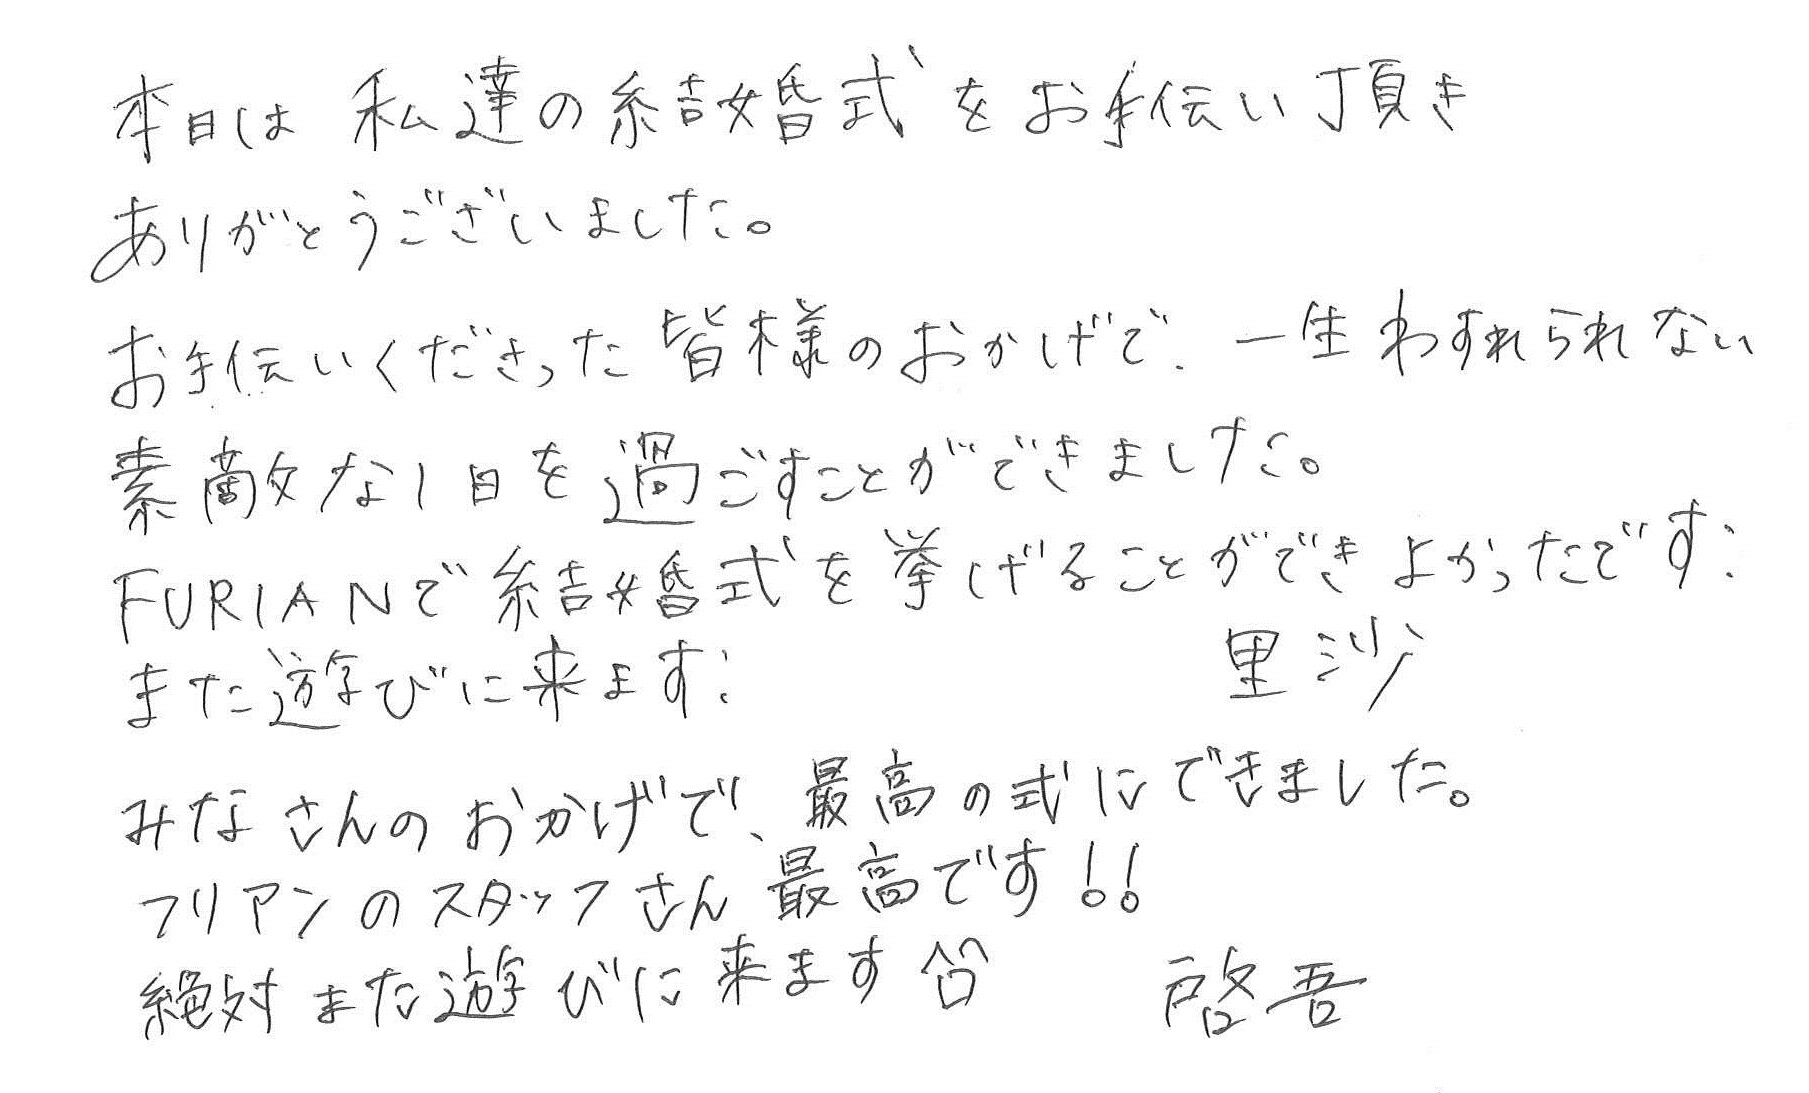 本日は 私達の結婚式をお手伝い頂き
ありがとうございました。
お手伝いくださった皆様のおかげで、一生わすれられない
素敵な1日を過ごすことができました。
FURIANで結婚式を挙げることができよかったです:
また遊びに来ます:
里沙
みなさんのおかげで、最高の式にできました。
フリアンのスタッフさん最高です!!
絶対また遊びに来ます^口^
啓吾